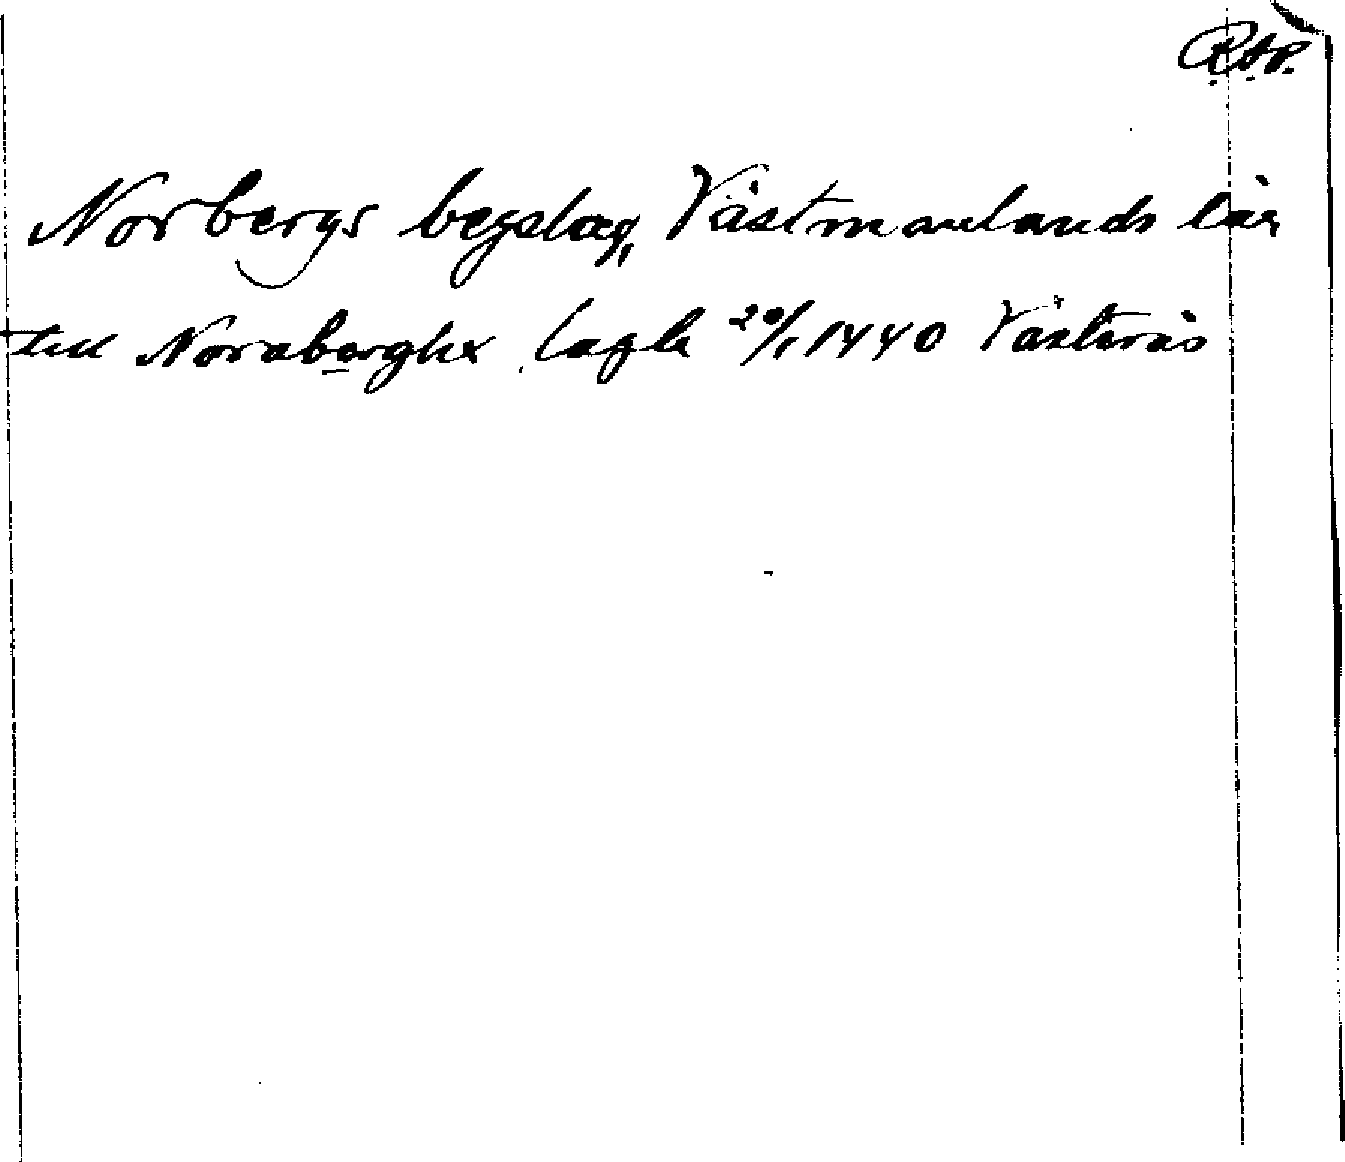 R.A.P.
Norbergs bergslag, Västmanlands län
till Noraberghx lagh 20/1 1440 Västerås